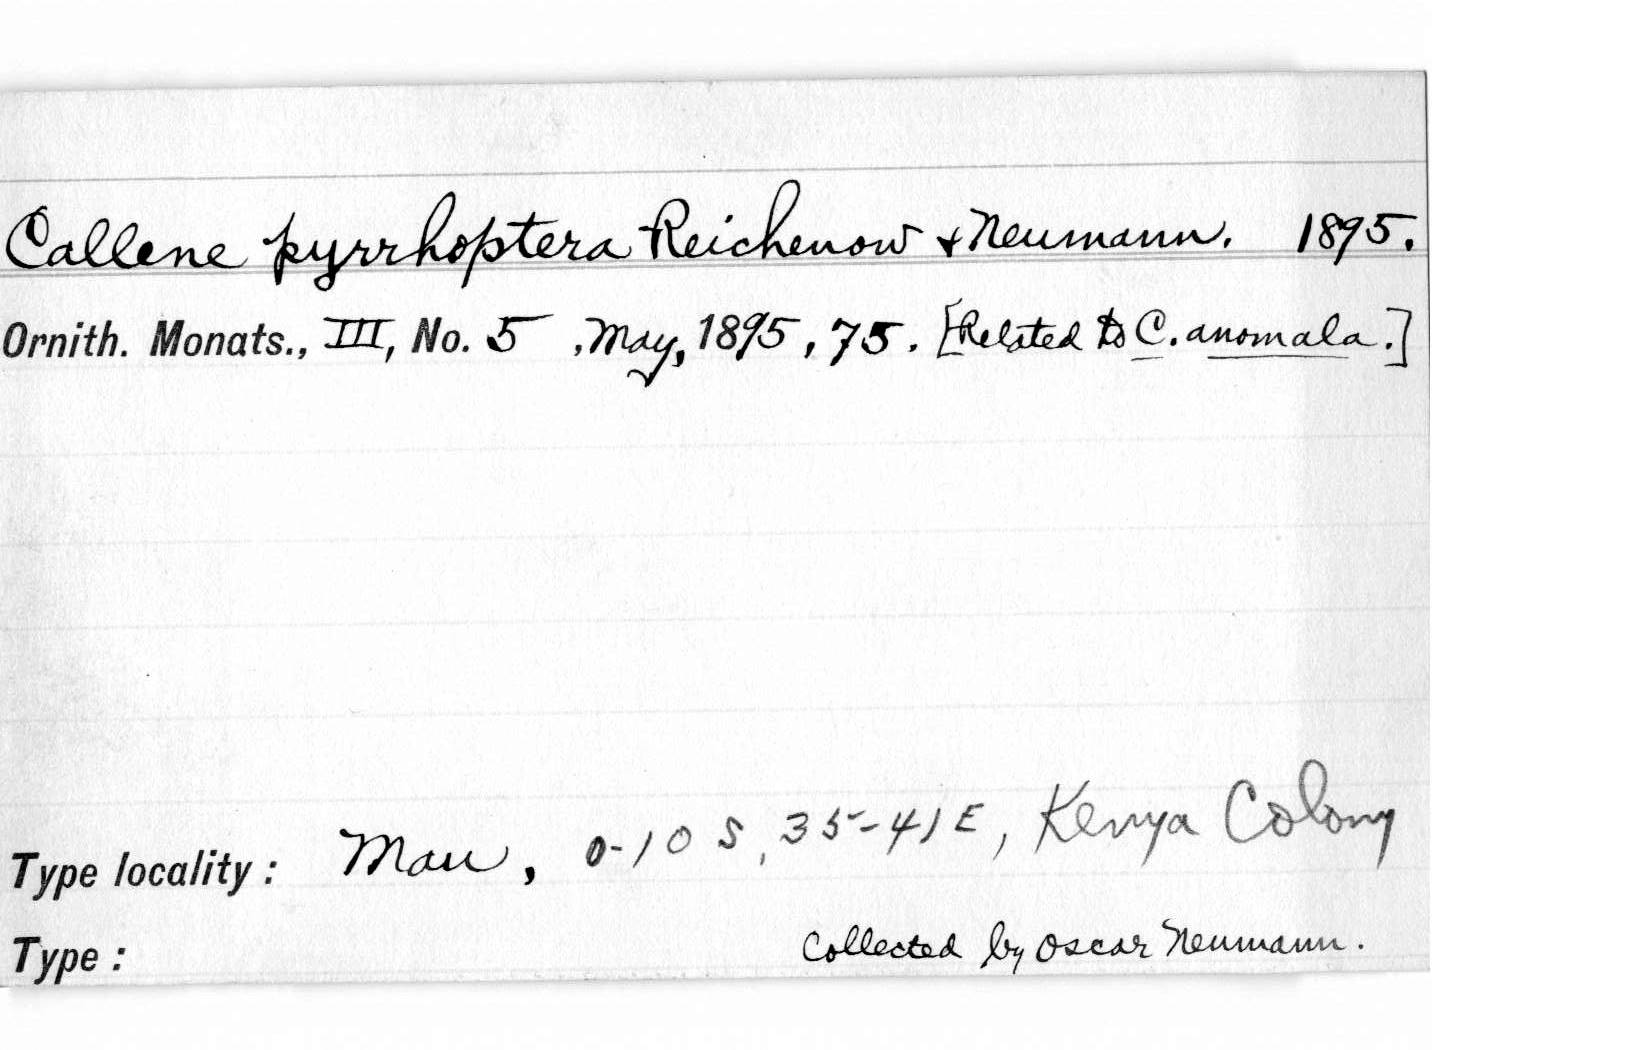 Callene pyrrhoptera Reichenow & Neumann. 1895.
Ornith. Monats., III, No. 5 , May, 1895, 75. [Related to C. anomala.]
Type locality: Mau, 0-10 S, 35-41 E, Kenya Colony
Type: Collected by Oscar Neumann.